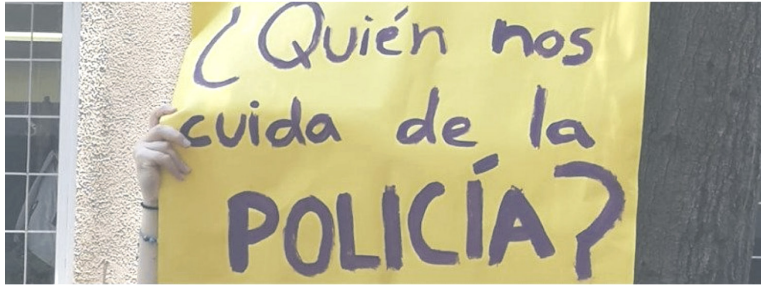 ¿Quién nos
cuida de la
POLICÍA?